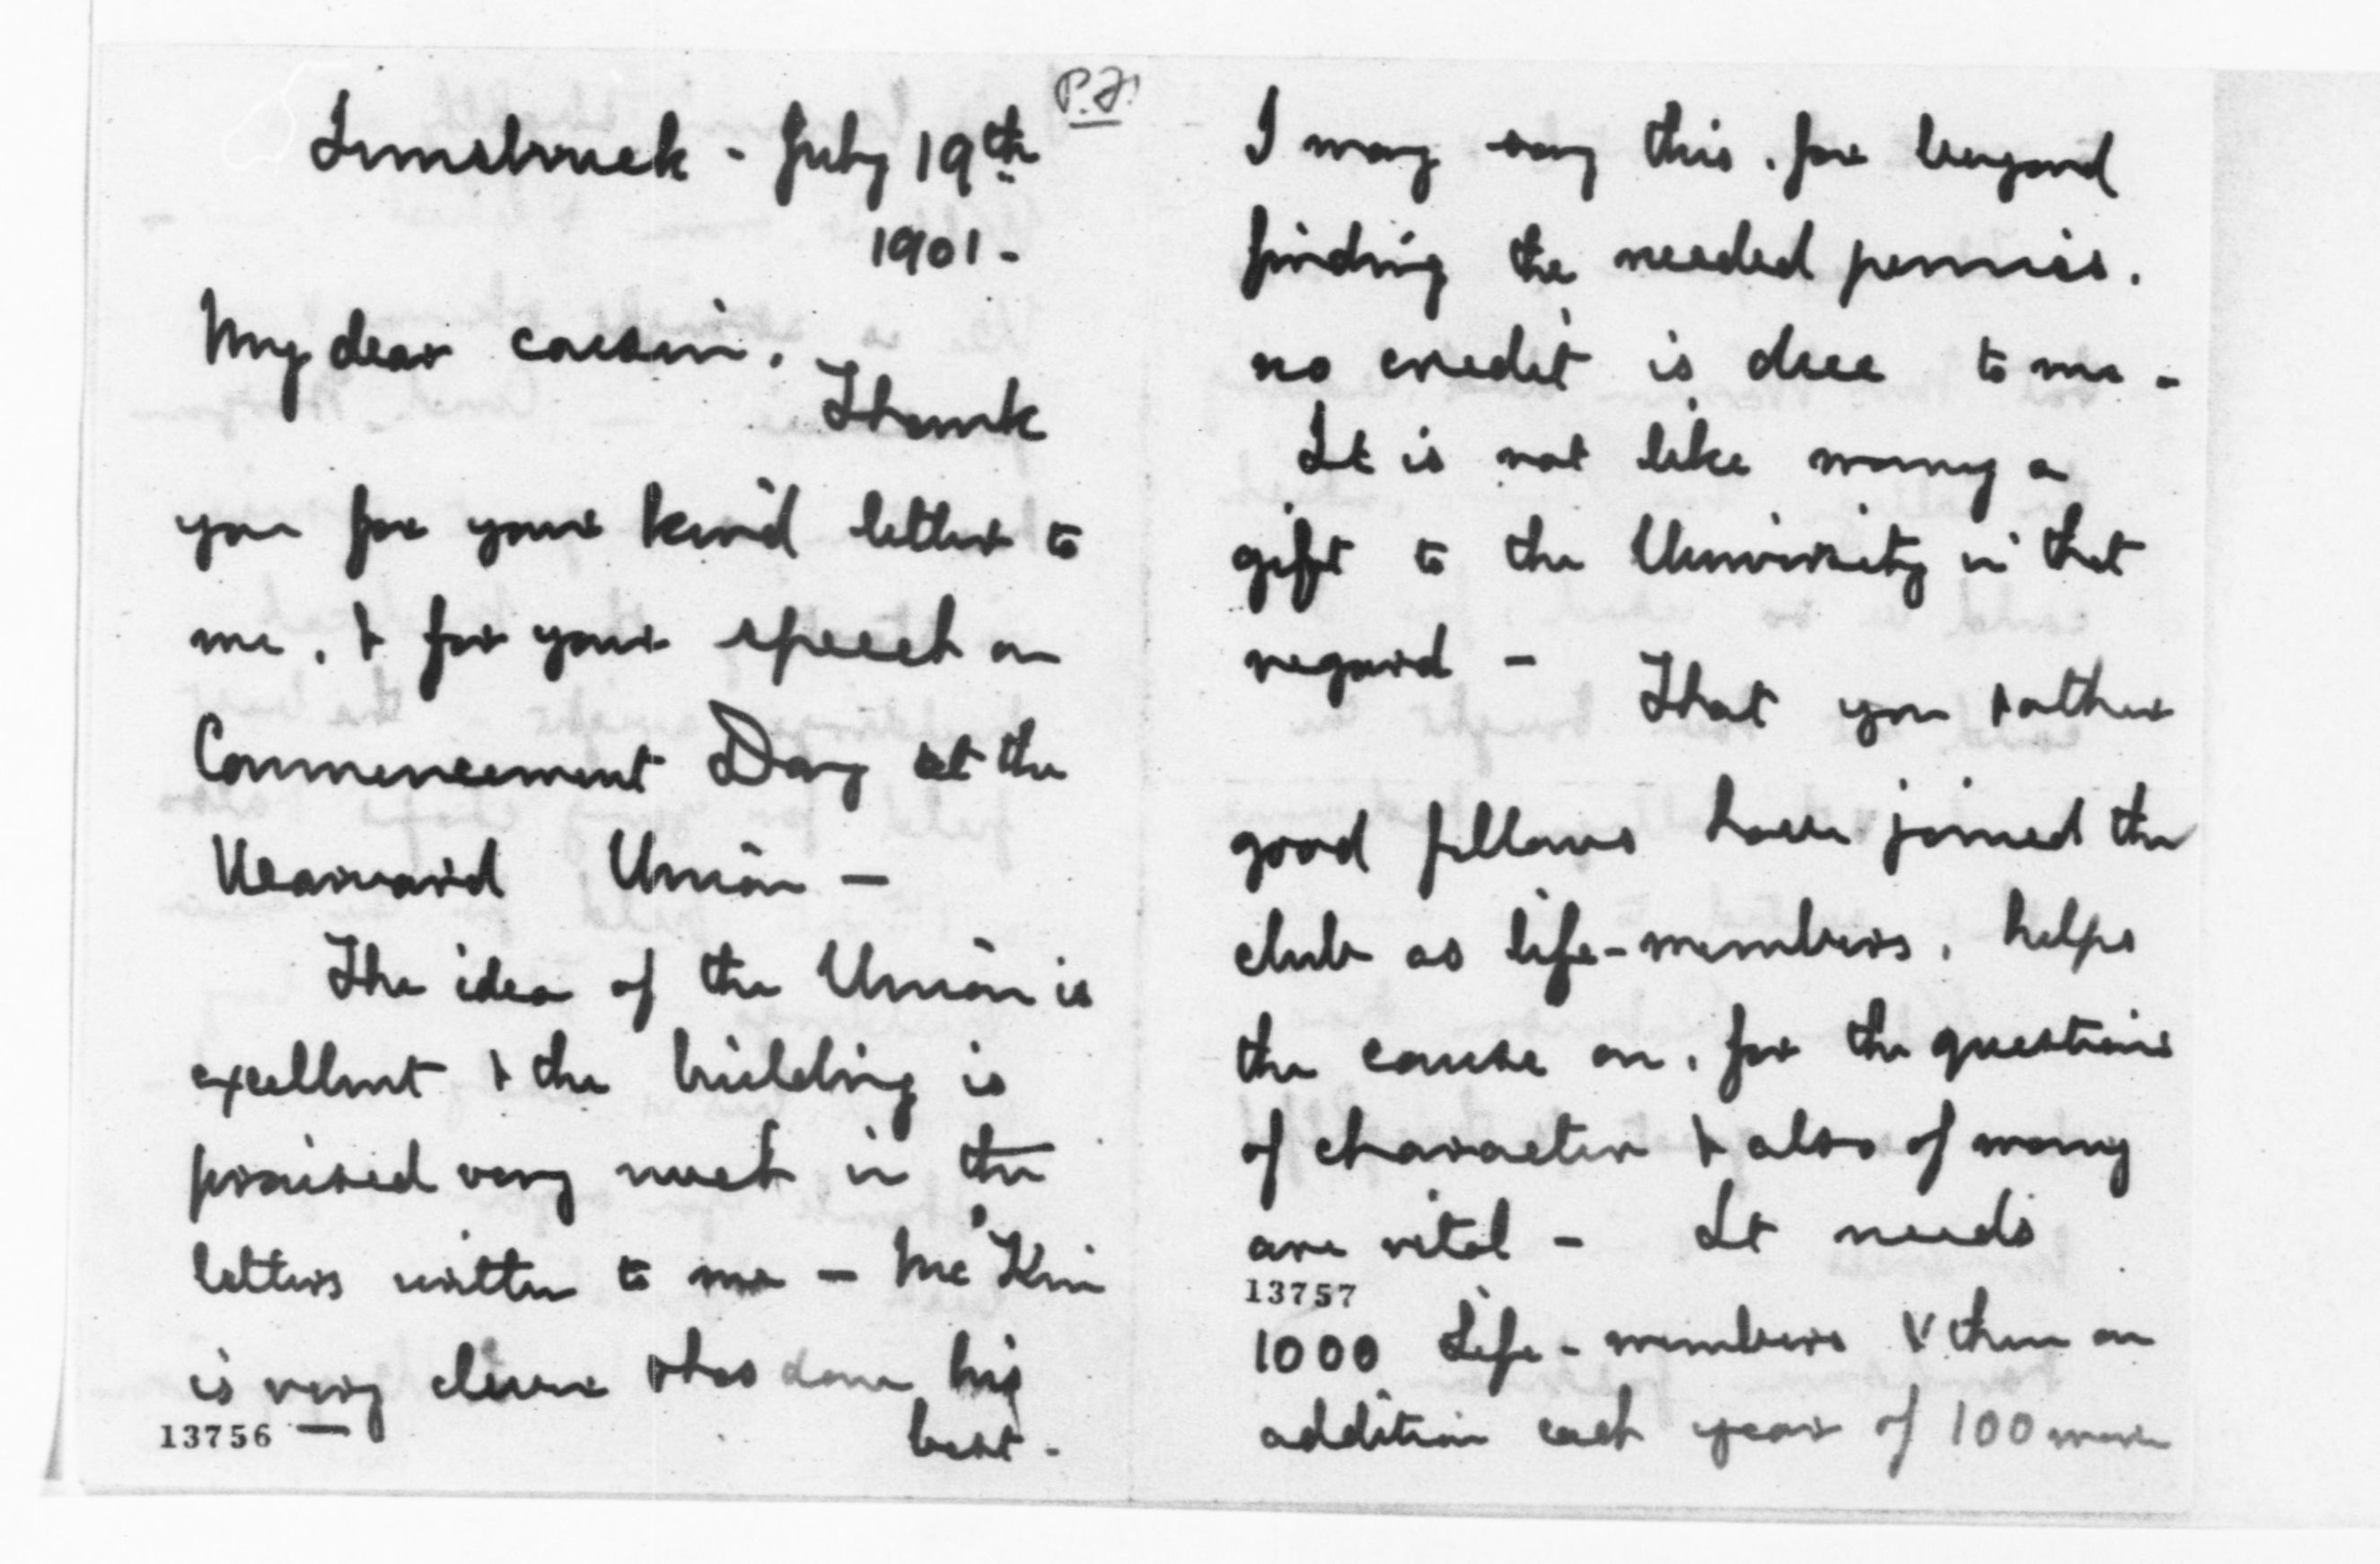 P.F.
Innsbruck - July 19th
1901 -
My dear cousin,
Thank
you for your kind letter to
me, & for your speech on
Commencement Day at the
Harvard Union —
The idea of the Union is
excellent & the building is
praised very much in the
letters written to me — McKim
is very clever & has done his
best -
13756
I may say this, for beyond
finding the needed pennies,
no credit is due to me -
It is not like many a
gift to the University in that
regard - That you & other
good fellows have joined the
club as life-members, helps
the cause on, for the questions
of character & also of money
are vital - It needs
13757
1000 Life-members & then an
addition each year of 100 more